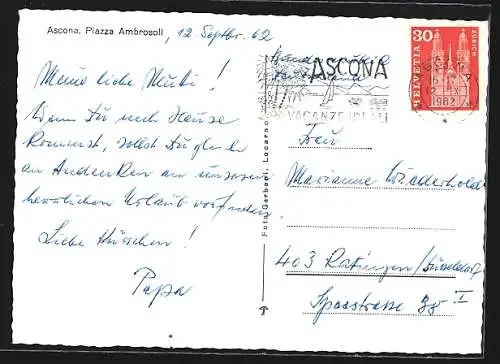 Ascona, Piazza Ambrosoli
12 Septbr. 62
Meine liebe Mutti!
Wenn Du nach Hause
kommst, sollst Du gleich
ein Andenken an unseren
herrlichen Urlaub vorfinden.
Liebe Küsschen!
Papa
Foto Garbani, Locarno
ASCONA
VACANZE IDEALI
30
HELVETIA
ZÜRICH
ASCONA
1962
Frau
Marianne Wiederhold
403 Ratingen/Düsseldorf
I